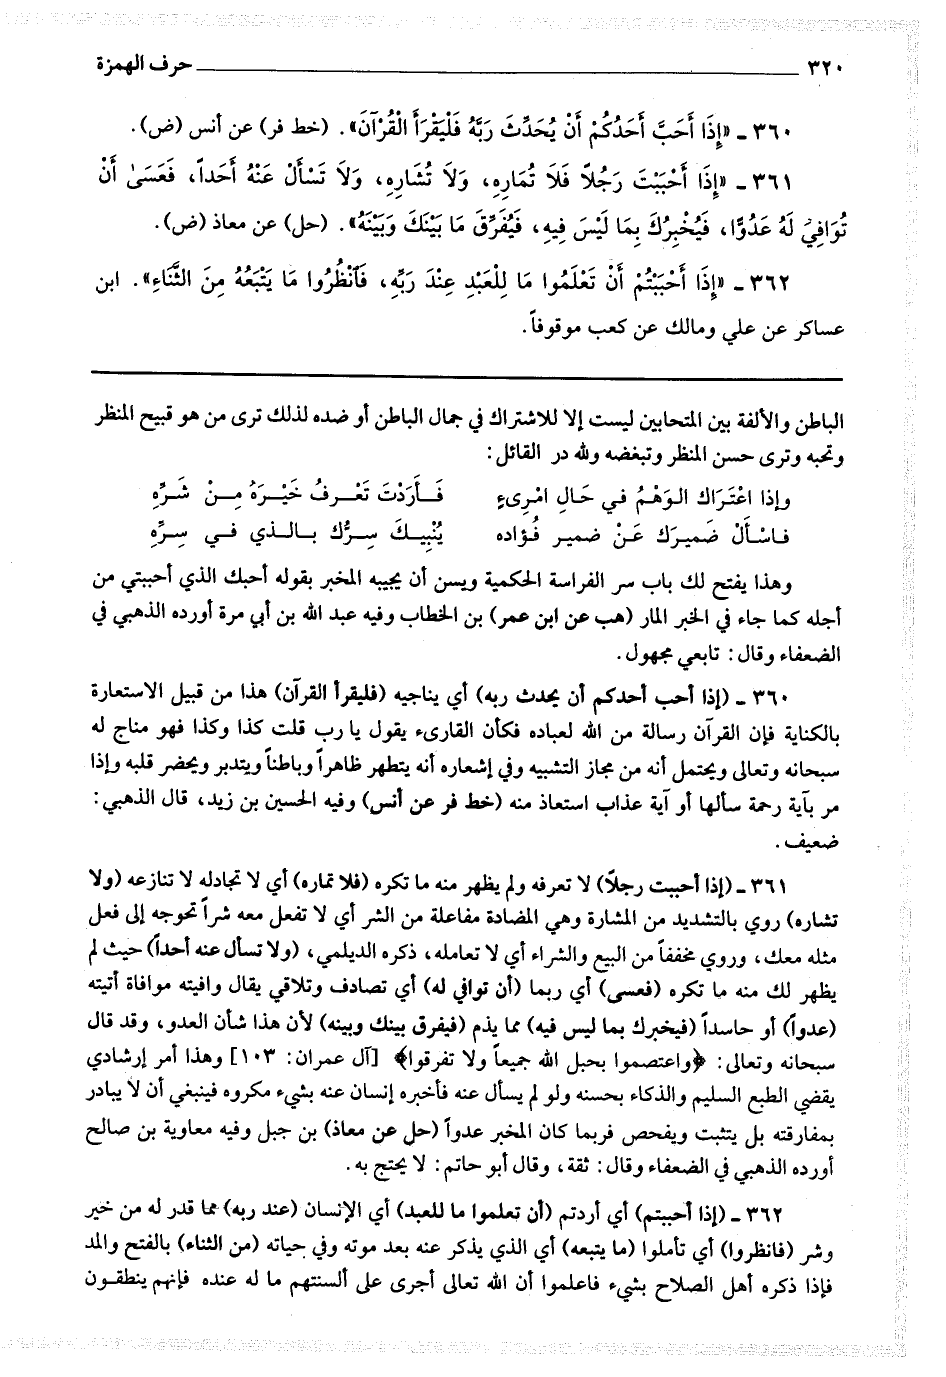 ٣٢٠ حرف الهمزة
٣٦٠ ـ «إِذَا أَحَبَّ أَحَدُكُمْ أَنْ يُحَدِّثَ رَبَّهُ فَلْيَقْرَأَ الْقُرْآنَ». (خط فر) عن أنس (ض).
٣٦١ ـ «إِذَا أَحْبَبْتَ رَجُلًا فَلَا تُمَارِهِ، وَلَا تُشَارِهِ، وَلَا تَسْأَلْ عَنْهُ أَحَداً، فَعَسَىٰ أَنْ
تُوَافِيَ لَهُ عَدُوًّا، فَيُخْبِرَكَ بِمَا لَيْسَ فِيهِ، فَيُفَرِّقَ مَا بَيْنَكَ وَبَيْنَهُ». (حل) عن معاذ (ض).
٣٦٢ ـ «إِذَا أَحْبَبْتُمْ أَنْ تَعْلَمُوا مَا لِلْعَبْدِ عِنْدَ رَبِّهِ، فَٱنْظُرُوا مَا يَتْبَعُهُ مِنَ الثَّنَاءِ». ابن
عساكر عن علي ومالك عن كعب موقوفاً.
الباطن والألفة بين المتحابين ليست إلا للاشتراك في جمال الباطن أو ضده لذلك ترى من هو قبيح المنظر
وتحبه وترى حسن المنظر وتبغضه ولله در القائل:
وإذا اعْتَرَاك الوَهْمُ في حَالِ امْرِىءٍ فَأَرَدْتَ تَعْرفُ خَيْرَهُ مِنْ شَرِّهِ
فاسْأَلْ ضَميرَك عَنْ ضمير فُؤاده يُنْبِيكَ سِرُّك بالذي في سِرِّهِ
وهذا يفتح لك باب سر الفراسة الحكمية ويسن أن يجيبه المخبر بقوله أحبك الذي أحببتي من
أجله كما جاء في الخبر المار (هب عن ابن عمر) بن الخطاب وفيه عبد الله بن أبي مرة أورده الذهبي في
الضعفاء وقال: تابعي مجهول.
٣٦٠ ـ (إذا أحب أحدكم أن يحدث ربه) أي يناجيه (فليقرأ القرآن) هذا من قبيل الاستعارة
بالكناية فإن القرآن رسالة من الله لعباده فكأن القارىء يقول يا رب قلت كذا وكذا فهو مناج له
سبحانه وتعالى ويحتمل أنه من مجاز التشبيه وفي إشعاره أنه يتطهر ظاهراً وباطناً ويتدبر ويحضر قلبه وإذا
مر بآية رحمة سألها أو آية عذاب استعاذ منه (خط فر عن أنس) وفيه الحسين بن زيد، قال الذهبي:
ضعيف.
٣٦١ ـ (إذا أحببت رجلاً) لا تعرفه ولم يظهر منه ما تكره (فلا تماره) أي لا تجادله لا تنازعه (ولا
تشاره) روي بالتشديد من المشارة وهي المضادة مفاعلة من الشر أي لا تفعل معه شراً تحوجه إلى فعل
مثله معك، وروي مخففاً من البيع والشراء أي لا تعامله، ذكره الديلمي، (ولا تسأل عنه أحداً) حيث لم
يظهر لك منه ما تكره (فعسى) أي ربما (أن توافي له) أي تصادف وتلاقي يقال وافيته موافاة أتيته
(عدواً) أو حاسداً (فيخبرك بما ليس فيه) مما يذم (فيفرق بينك وبينه) لأن هذا شأن العدو، وقد قال
سبحانه وتعالى: ﴿واعتصموا بحبل الله جميعاً ولا تفرقوا﴾ [آل عمران: ١٠٣] وهذا أمر إرشادي
يقضي الطبع السليم والذكاء بحسنه ولو لم يسأل عنه فأخبره إنسان عنه بشيء مكروه فينبغي أن لا يبادر
بمفارقته بل يتثبت ويفحص فربما كان المخبر عدواً (حل عن معاذ) بن جبل وفيه معاوية بن صالح
أورده الذهبي في الضعفاء وقال: ثقة، وقال أبو حاتم: لا يحتج به.
٣٦٢ ـ (إذا أحببتم) أي أردتم (أن تعلموا ما للعبد) أي الإنسان (عند ربه) مما قدر له من خير
وشر (فانظروا) أي تأملوا (ما يتبعه) أي الذي يذكر عنه بعد موته وفي حياته (من الثناء) بالفتح والمد
فإذا ذكره أهل الصلاح بشيء فاعلموا أن الله تعالى أجرى على ألسنتهم ما له عنده فإنهم ينطقون